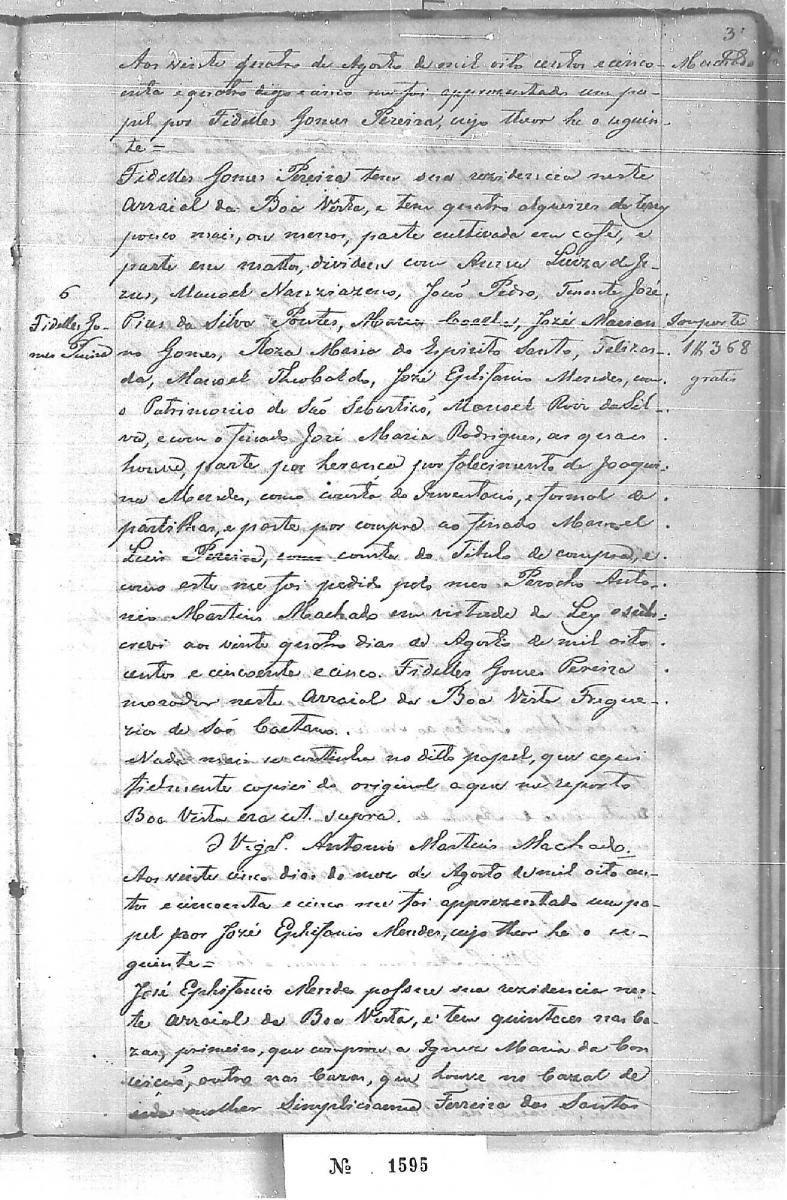 3
Machado
Aos vinte quatro de Agosto de mil oito centos e cinco-
enta e quatro digo e cinco me foi appresentado um pa-
pel por Fidelles Gomes Pereira, cujo theor he o seguin-
te=
Fidelles Gomes Pereira tem sua rezidencia neste
Arraial da Boa Vista, e tem quatro alqueires de terra
pouco mais, ou menos, parte cultivada em café, e
parte em mattos, dividem com Anna Luiza de Je-
zus, Manoel Nanziazeno, João Pedro, Tenente José
Pias da Silva Pontes, Maria José Marian
no Gomes, Roza Maria do Espirito Santo, Feliza-
da, Manoel Theobaldo, José Ephifanio Mendes, com
o Patrimonio de São Sebastião, Manoel da Sil-
va, e com o finado José Maria Rodrigues, as quaes
houve, parte por herança por falecimento de Joaqui-
na Mendes, como consta do Inventario, e formal de
partilhas, e parte por compra ao finado Manoel
Luis Pereira, como consta do Titulo de compra, e
como este me foi pedido pelo meo Parocho Anto-
nio Martins Machado em virtude da Ley o subs-
crevi aos vinte quatro dias de Agosto de mil oito
centos e cincoenta e cinco. Fidelles Gomes Pereira
morador neste Arraial da Boa Vista Fregue-
zia de São Caetano.
Nada mais se continha no dito papel, que aqui
fielmente copiei do original a que me reporto
Boa Vista era ut supra.
O Vigr.º Antonio Martins Machado.
Aos vinte cinco dias do mez de Agosto de mil oito cen-
tos e cincoenta e cinco me foi apprezentado um pa-
pel por José Ephifanio Mendes, cujo theor he o se-
guinte=
José Ephifanio Mendes possue sua rezidencia nes-
te Arraial da Boa Vista, e tem quintaes nas Ca-
zas, primeiro, que comprou a Ignez Maria da Con
ceição, outro nas Cazas, que houve no Cazal de
sua molher Simpliciana Ferreira dos Santos
6
Fidelles Go-
mes Pereira
Importe
1$368
gratis
Nº 1595